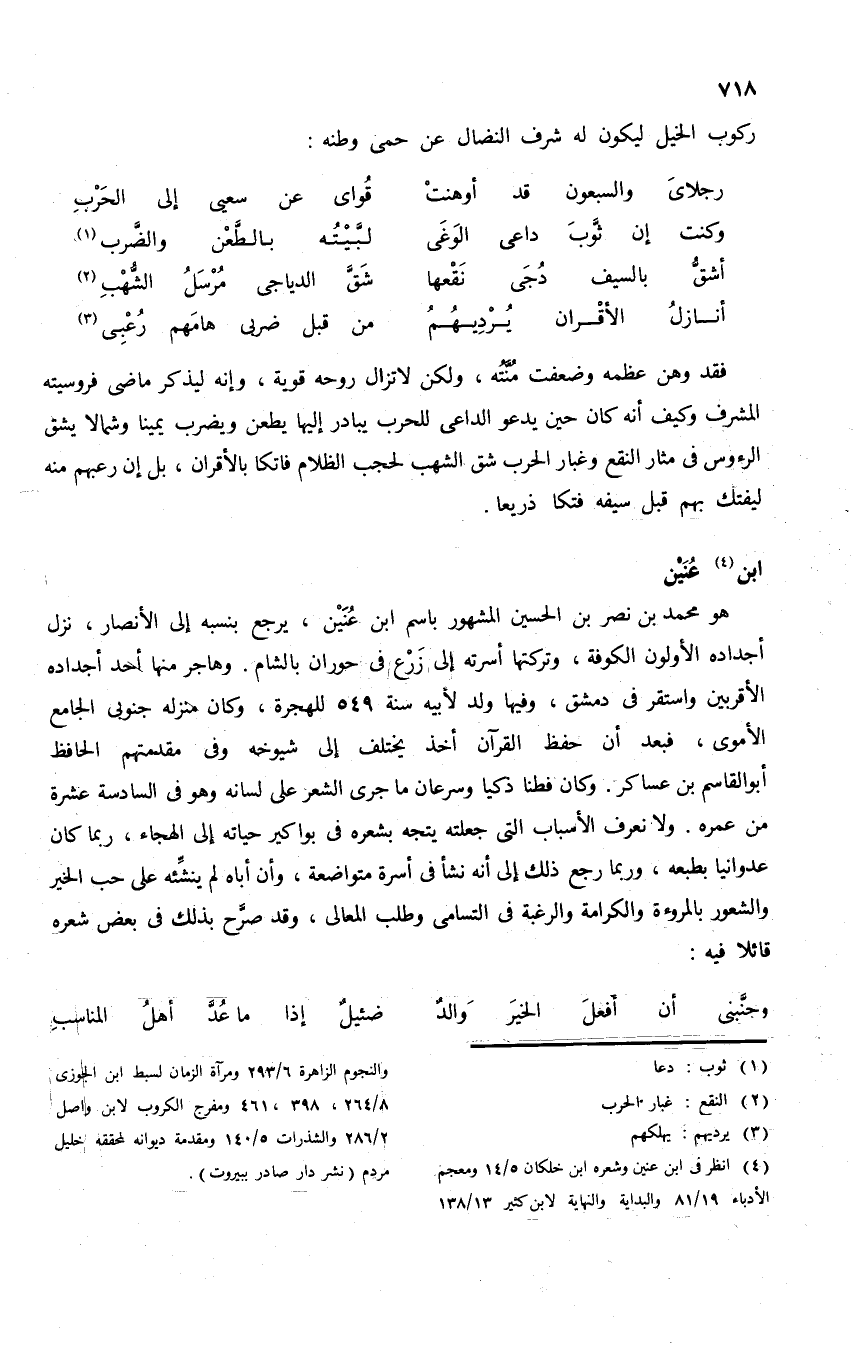 ٧١٨
ركوب الخيل ليكون له شرف النضال عن حمى وطنه :
رجلاىَ والسبعون قد أوهنتْ قُواى عن سعيى إلى الحَرْبِ
وكنت إن ثُوَّبَ داعى الوَغَى لبَّيْتُه بالطَّعْن والضَّرب (١)
أشقُّ بالسيف دُجَى نَقْعها شَقَّ الدياجى مُرْسَلُ الشُّهْبِ (٢)
أنــازلُ الأقْــران يُــرْديــهُــمُ من قبل ضربى هامَهم رُعْبِى (٣)
فقد وهن عظمه وضعفت مُنَّتُه ، ولكن لاتزال روحه قوية ، وإنه ليذكر ماضى فروسيته
المشرف وكيف أنه كان حين يدعو الداعى للحرب يبادر إليها يطعن ويضرب يمينا وشمالا يشق
الرءوس فى مثار النقع وغبار الحرب شق الشهب لحجب الظلام فاتكا بالأقران ، بل إن رعبهم منه
ليفتك بهم قبل سيفه فتكا ذريعا .
ابن (٤) عُنَيْن
هو محمد بن نصر بن الحسين المشهور باسم ابن عُنَيْن ، يرجع بنسبه إلى الأنصار ، نزل
أجداده الأولون الكوفة ، وتركتها أسرته إلى زَرْع فى حوران بالشام . وهاجر منها أحد أجداده
الأقربين واستقر فى دمشق ، وفيها ولد لأبيه سنة ٥٤٩ للهجرة ، وكان منزله جنوبى الجامع
الأموى ، فبعد أن حفظ القرآن أخذ يختلف إلى شيوخه وفى مقدمتهم الحافظ
أبوالقاسم بن عساكر . وكان فطنا ذكيا وسرعان ما جرى الشعر على لسانه وهو فى السادسة عشرة
من عمره . ولا نعرف الأسباب التى جعلته يتجه بشعره فى بواكير حياته إلى الهجاء ، ربما كان
عدوانيا بطبعه ، وربما رجع ذلك إلى أنه نشأ فى أسرة متواضعة ، وأن أباه لم ينشِّئه على حب الخير
والشعور بالمروءة والكرامة والرغبة فى التسامى وطلب المعالى ، وقد صرَّح بذلك فى بعض شعره
قائلا فيه :
وجنَّبنى أن أفعلَ الخيرَ والدٌ ضئيلٌ إذا ما عُدَّ أهلُ المناسبِ
(١) ثوب : دعا
(٢) النقع : غبار الحرب
(٣) يرديهم : يهلكهم
(٤) انظر فى ابن عنين وشعره ابن خلكان ١٤/٥ ومعجم
الأدباء ٨١/١٩ والبداية والنهاية لابن كثير ١٣٨/١٣
والنجوم الزاهرة ٢٩٣/٦ ومرآة الزمان لسبط ابن الجوزى
٢٦٤/٨ ، ٣٩٨ ، ٤٦١ ومفرج الكروب لابن واصل
٢٨٦/٢ والشذرات ١٤٠/٥ ومقدمة ديوانه لمحققه خليل
مردم ( نشر دار صادر ببيروت ) .